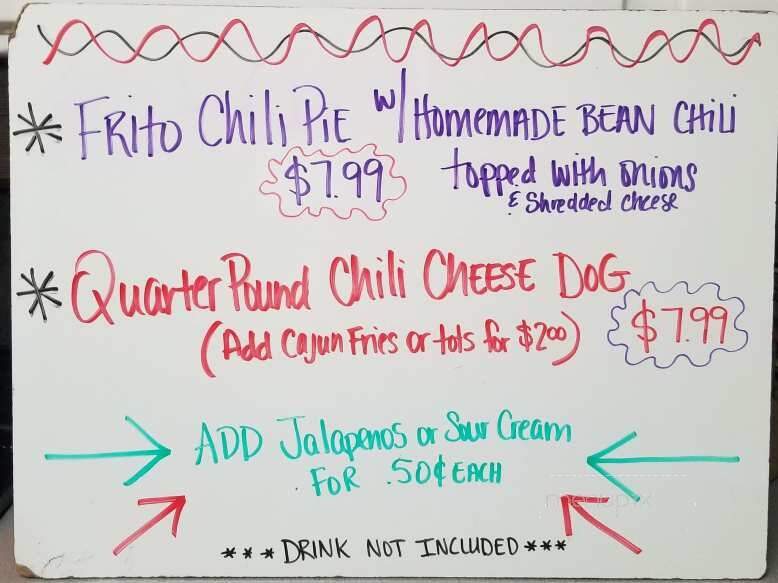 * FRito Chili PiE w/ HomemADE BEAN CHili
$7.99 topped with onions
& Shredded cheese
* Quarter Pound Chili CHEESE DOG
(Add Cajun Fries or tots for $2.00) $7.99
ADD Jalapenos or Sour Cream
FOR .50¢ EACH
*** DRINK NOT INCLUDED ***